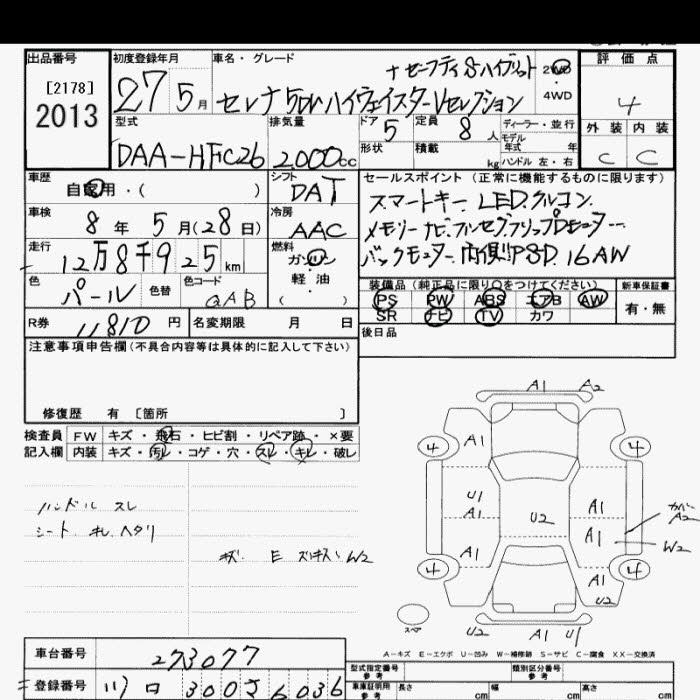 出品番号 初度登録年月 車名・グレード 評価点
[2178]
2013
27 5月
+セーフティ Sハイブリッド
セレナ 5Dr ハイウェイスターVセレクション
2WD
4WD
4
型式 排気量 ドア 定員 ディーラー・並行 外装 内装
DAA-HFC26 2,000cc 5 8人 モデル年式 年
形状 積載 kg ハンドル 左・右 C C
車歴 シフト セールスポイント (正常に機能するものに限ります)
自家用・( ) DAT
スマートキー. LED. クルコン.
車検 冷房
8年 5月(28日) AAC
メモリーナビ. フルセグ. フリップDモニター.
走行 燃料
12万8千925km ガソリン
バックモニター. 両側PSD. 16AW
軽油
( )
色 色替 色コード
パール QAB
装備品 (純正品に限り○をつけてください) 新車保証書
PS PW ABS エアB AW 有・無
SR ナビ TV カワ
R券 11810円 名変期限 月 日
後日品
注意事項申告欄(不具合内容等は具体的に記入して下さい)
修復歴 有 [箇所 ]
検査員 FW キズ・飛石・ヒビ割・リペア跡・×要
記入欄 内装 キズ・汚レ・コゲ・穴・スレ・キレ・破レ
ハンドル スレ
シート キレ ヘタリ
A1 A2
4 A1 4
U1
A1 U2 A1
カバー
A2
A1 A1 W2
4 A1 4
U2
スペア
U2 A1 U1
A-キズ E-エクボ U-凹み W-補修跡 S-サビ C-腐食 XX-交換済
車台番号 273077
型式指定番号 類別区分番号
参考 参考
登録番号 300 さ 6036
車庫証明用 長さ 幅 高さ
参考 cm cm cm